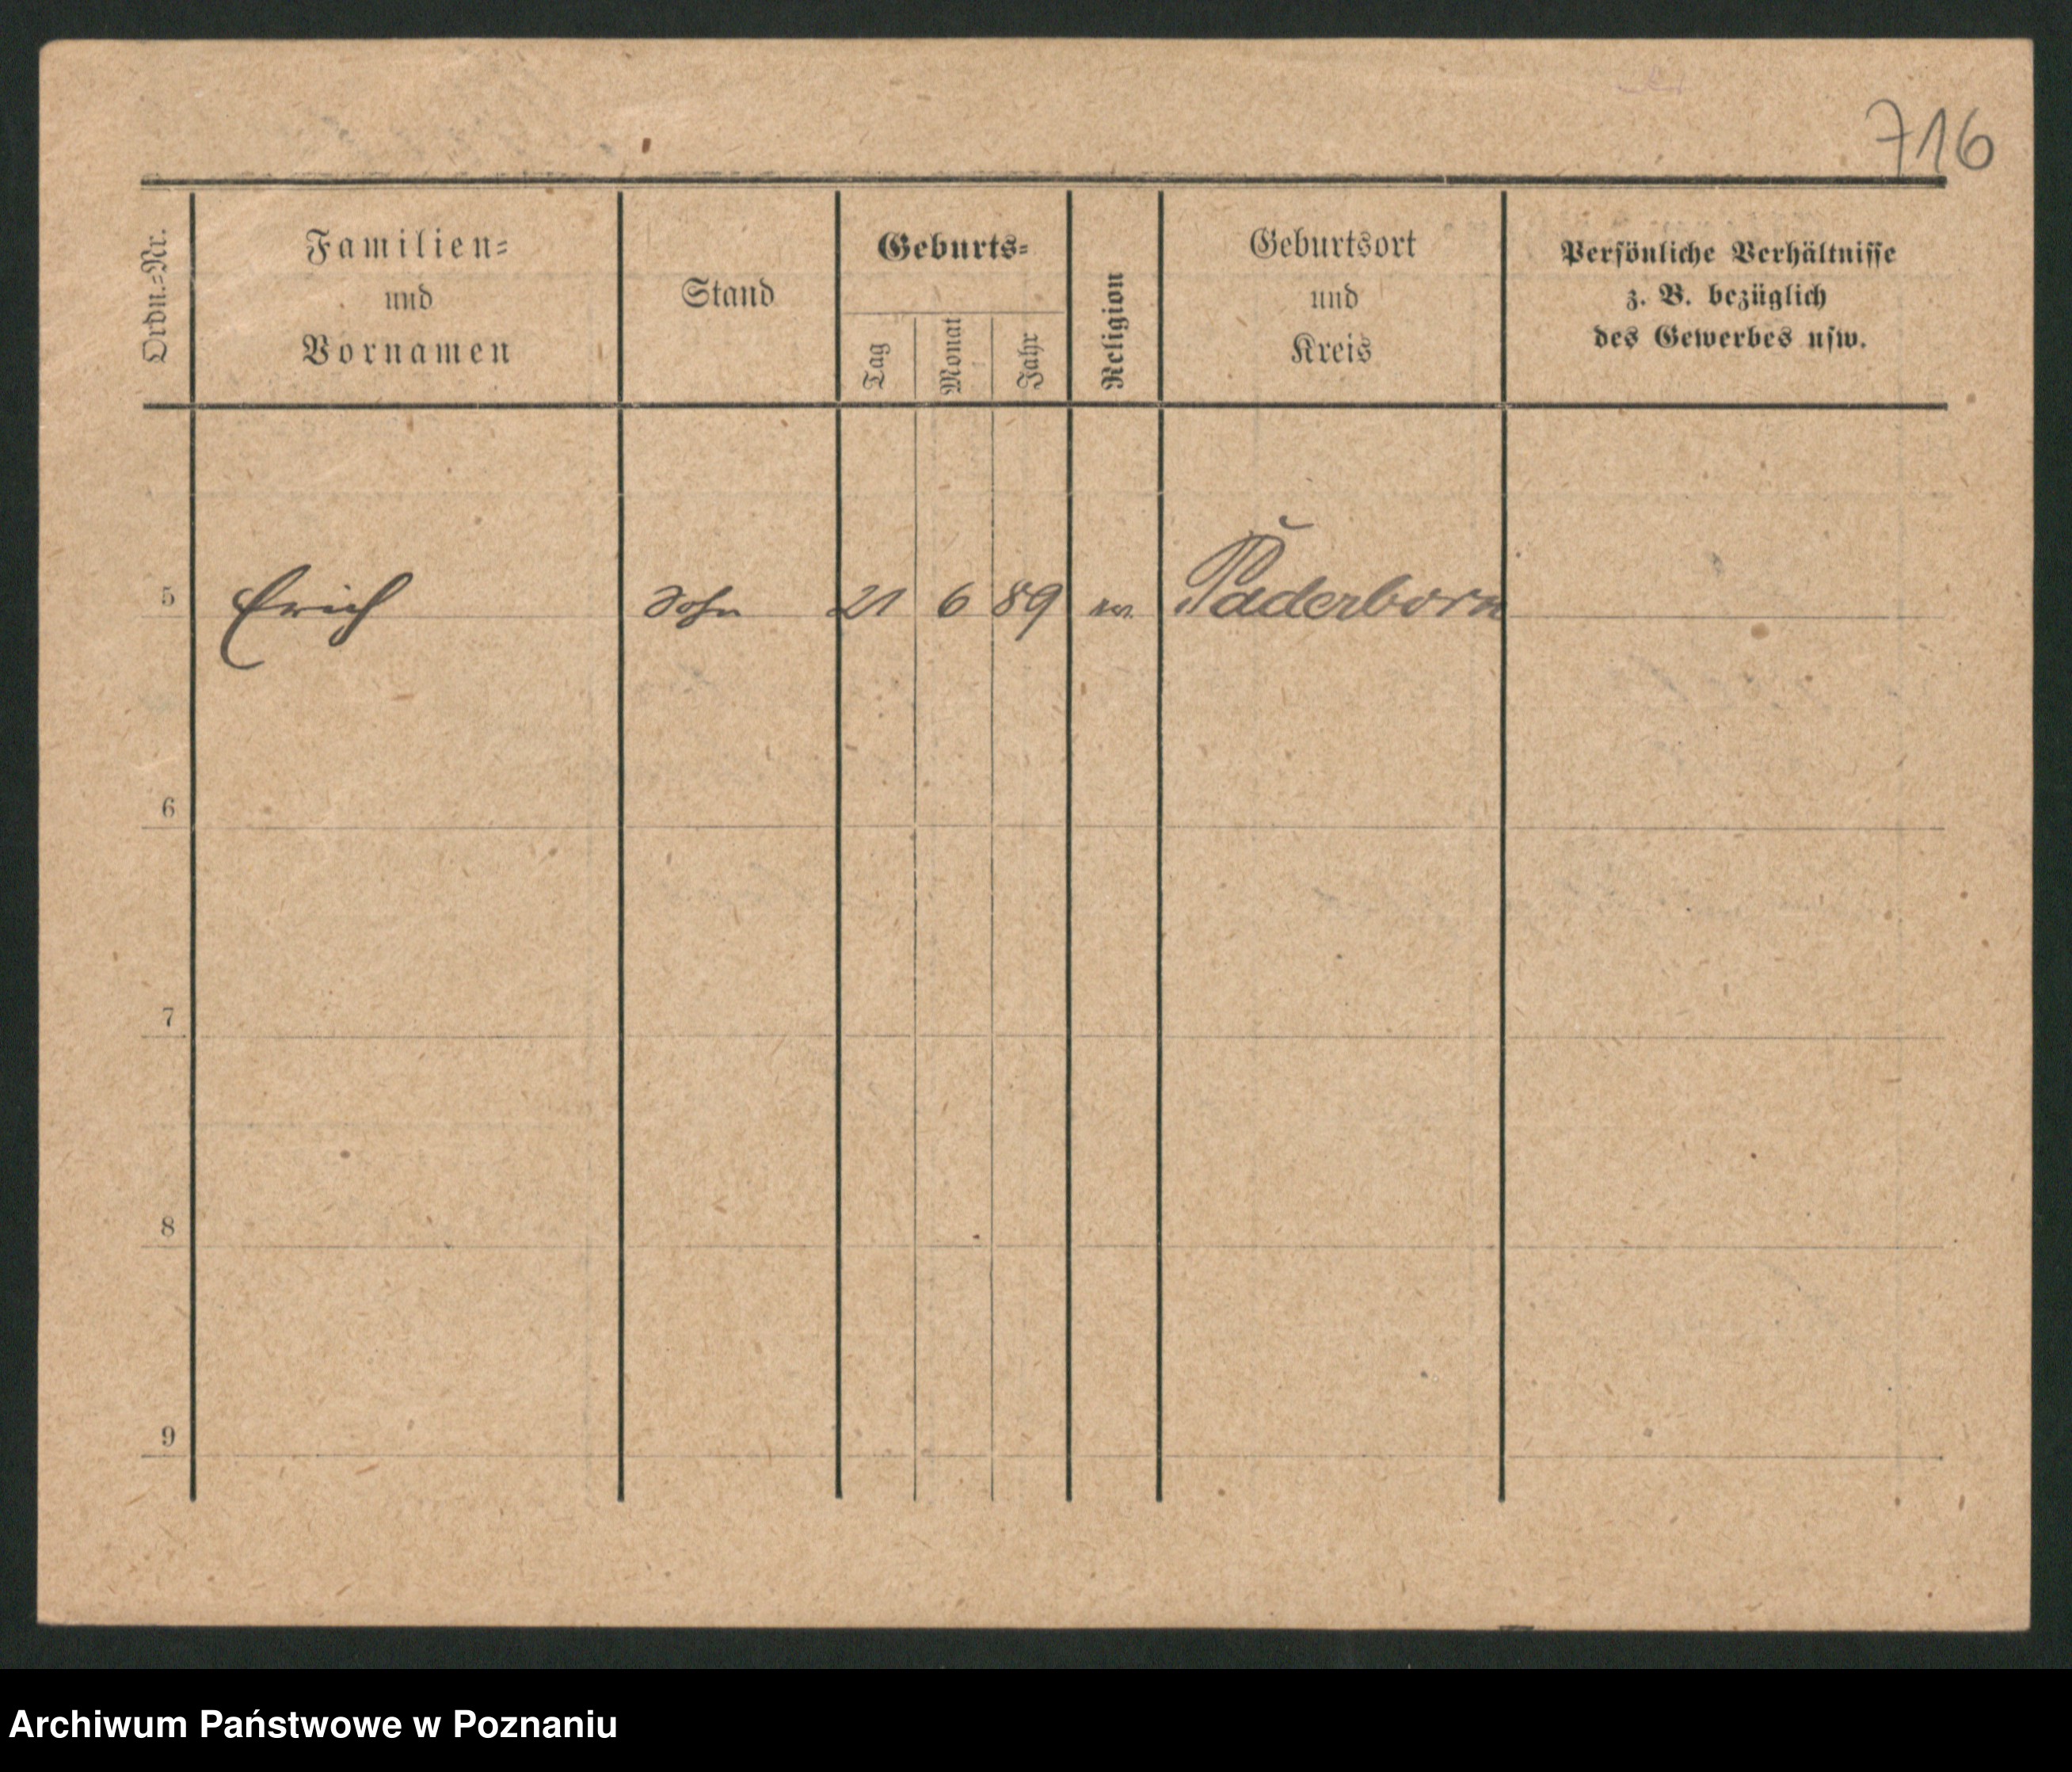 716
Ordn.=Nr.
Familien=
und
Vornamen
Stand
Geburts=
Tag
Monat
Jahr
Religion
Geburtsort
und
Kreis
Persönliche Verhältnisse
z. B. bezüglich
des Gewerbes usw.
5 Erich Sohn 21 6 89 Paderborn
6
7
8
9
Archiwum Państwowe w Poznaniu